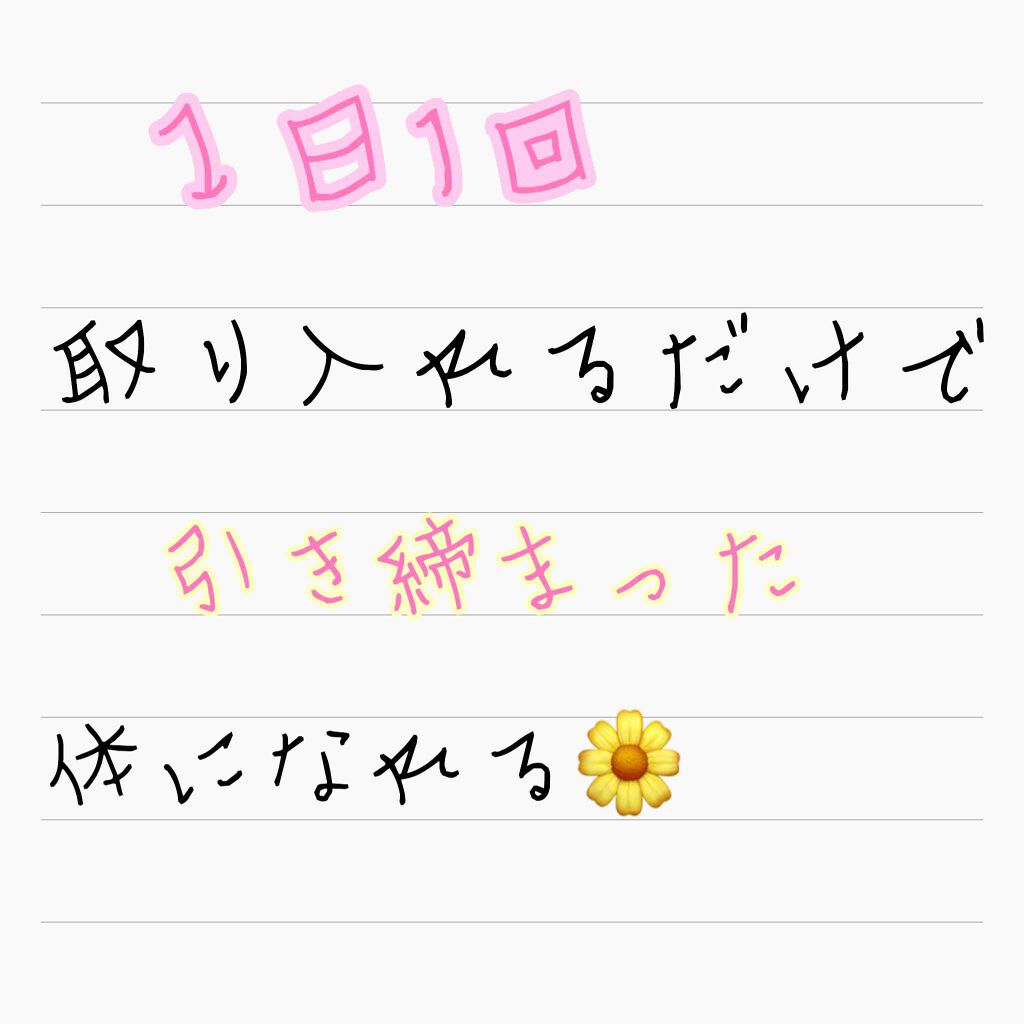 1日1回
取り入れるだけで
引き締まった
体になれる🌼